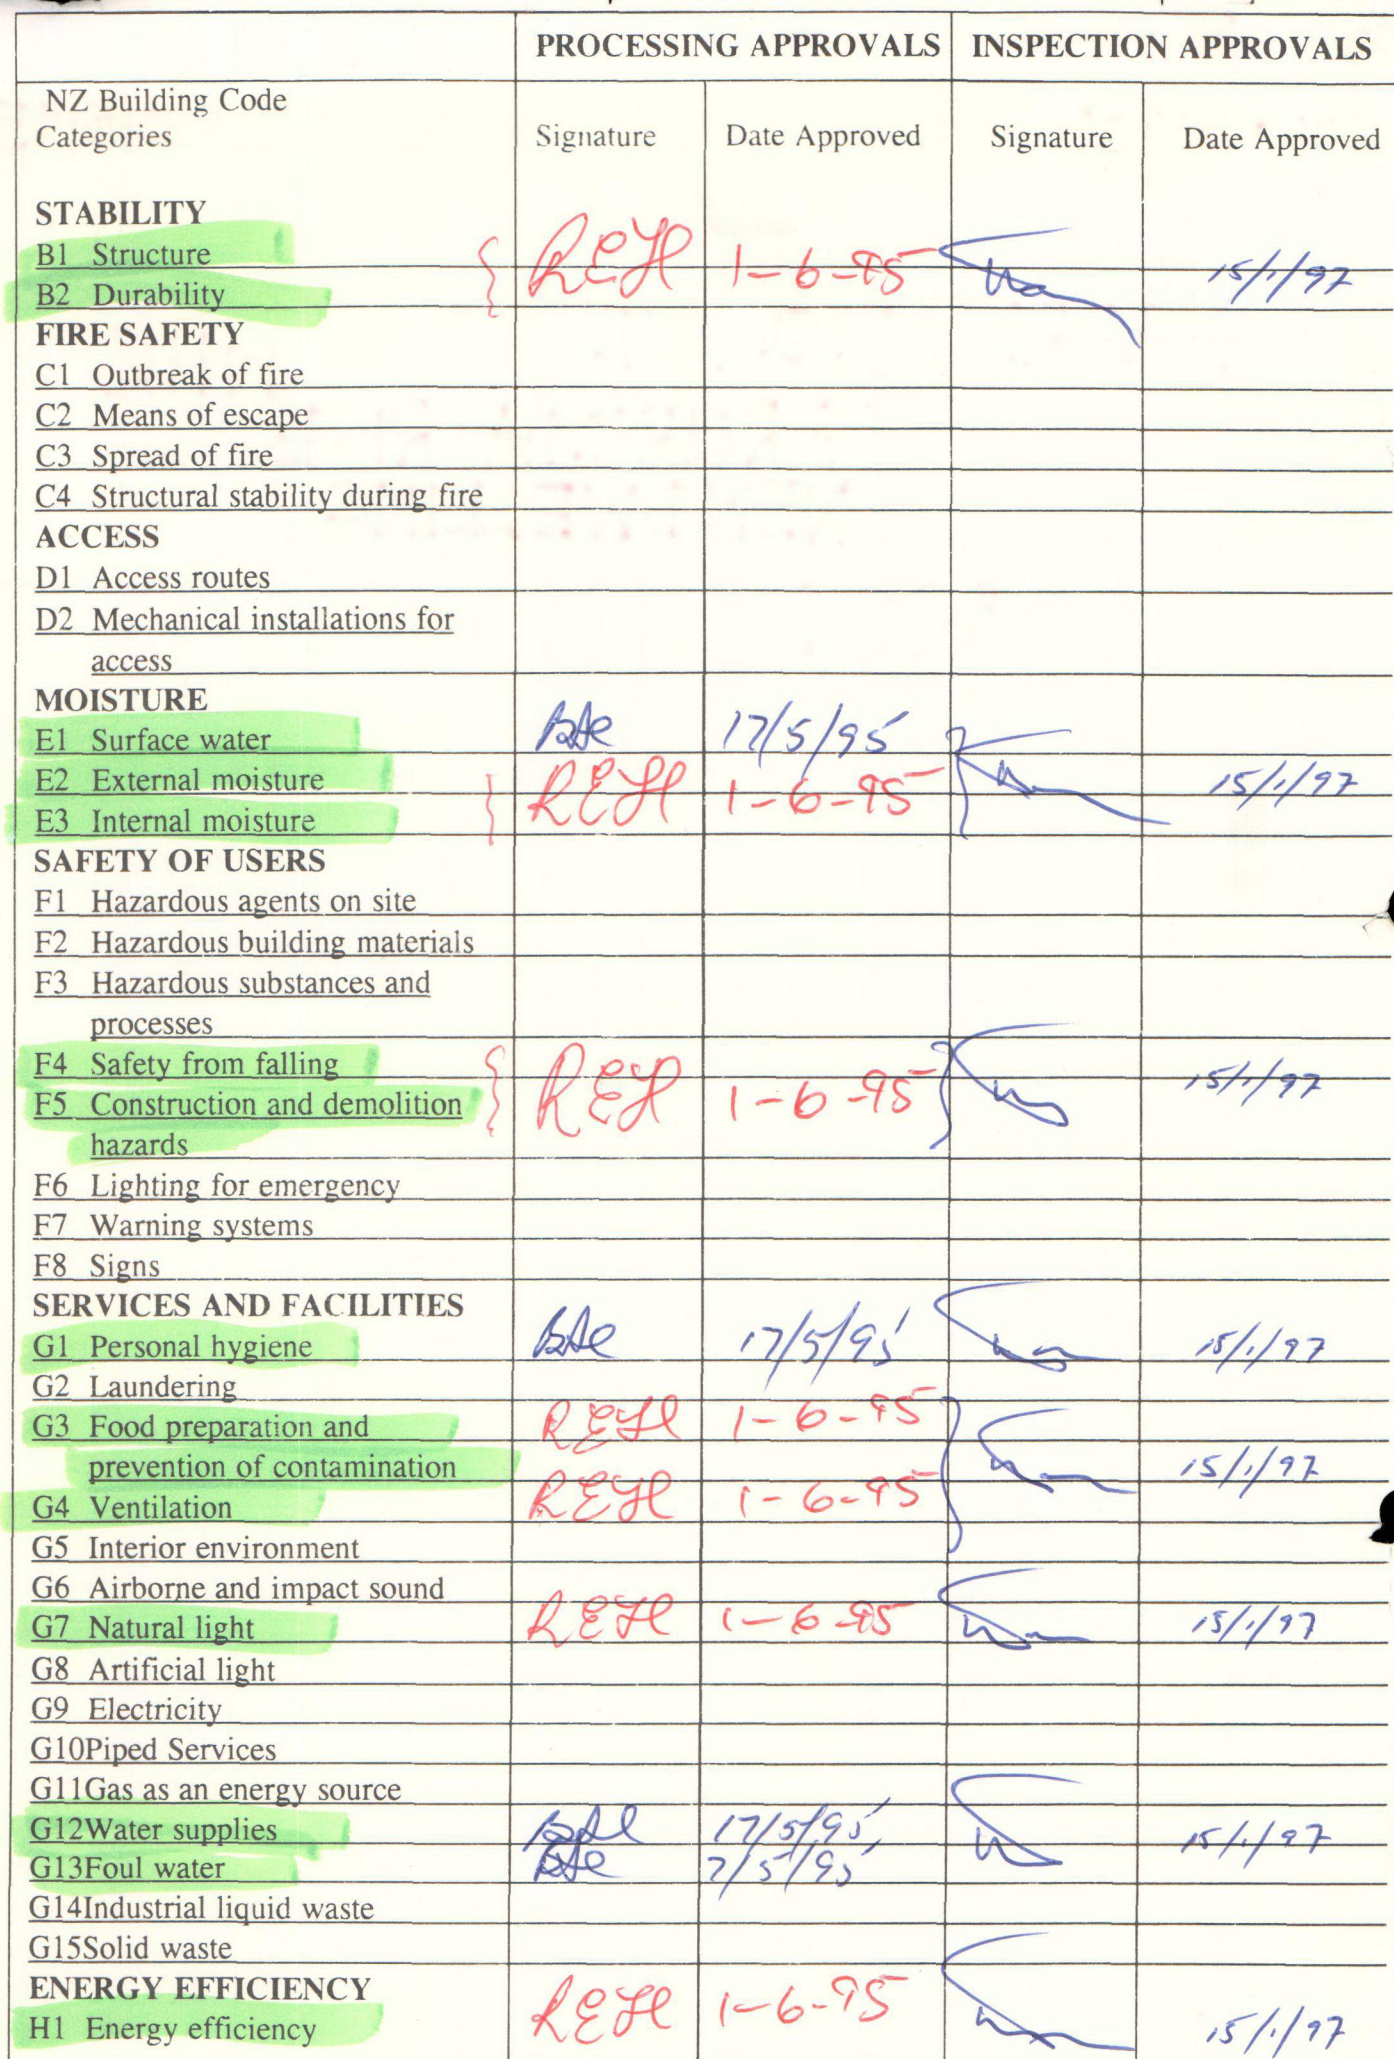 PROCESSING APPROVALS INSPECTION APPROVALS
NZ Building Code
Categories Signature Date Approved Signature Date Approved
STABILITY
B1 Structure REH 1-6-95 15/1/97
B2 Durability
FIRE SAFETY
C1 Outbreak of fire
C2 Means of escape
C3 Spread of fire
C4 Structural stability during fire
ACCESS
D1 Access routes
D2 Mechanical installations for
access
MOISTURE
E1 Surface water 17/5/95
E2 External moisture REH 1-6-95 15/1/97
E3 Internal moisture
SAFETY OF USERS
F1 Hazardous agents on site
F2 Hazardous building materials
F3 Hazardous substances and
processes
F4 Safety from falling REH 1-6-95 15/1/97
F5 Construction and demolition
hazards
F6 Lighting for emergency
F7 Warning systems
F8 Signs
SERVICES AND FACILITIES
G1 Personal hygiene 17/5/95 15/1/97
G2 Laundering
G3 Food preparation and REH 1-6-95
prevention of contamination 15/1/97
G4 Ventilation REH 1-6-95
G5 Interior environment
G6 Airborne and impact sound
G7 Natural light REH 1-6-95 15/1/97
G8 Artificial light
G9 Electricity
G10Piped Services
G11Gas as an energy source
G12Water supplies 17/5/95 15/1/97
G13Foul water 7/5/95
G14Industrial liquid waste
G15Solid waste
ENERGY EFFICIENCY
H1 Energy efficiency REH 1-6-95 15/1/97